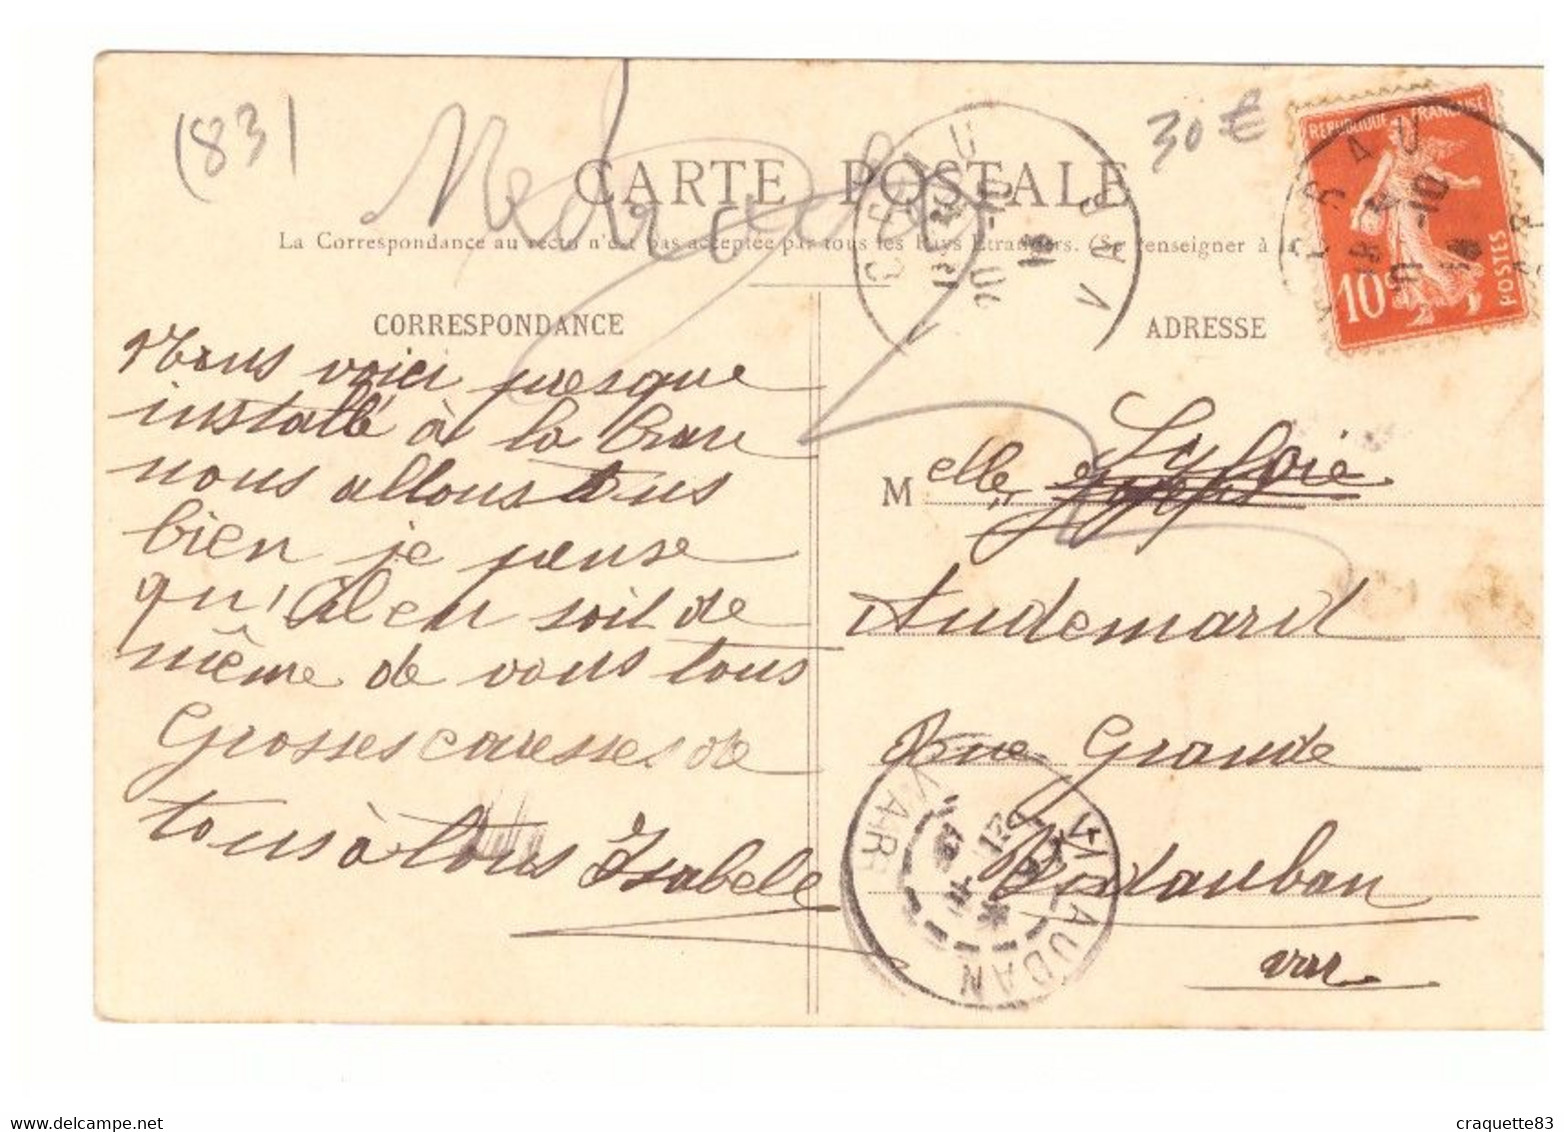 (83)
30 €
CARTE POSTALE
La Correspondance au recto n'est pas acceptée par tous les Pays Etrangers. (Se renseigner à la
RÉPUBLIQUE FRANÇAISE
10c
POSTES
VAR
CORRESPONDANCE
ADRESSE
Nous voici presque
installé à la
nous allons tous
bien je pense
qu'il en soit de
même de vous tous
Grosses caresses de
tous à tous Isabele
Melle Sylvie
Audemard
Rue Grande
Vidauban
var
VIDAUBAN
VAR
delcampe.net
craquette83